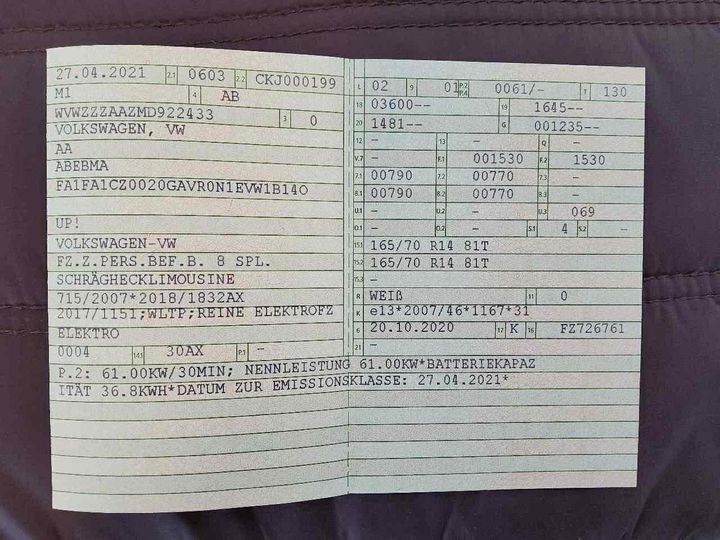 27.04.2021 2.1 0603 2.2 CKJ000199
M1 4 AB
WVWZZZAAZMD922433 3 0
VOLKSWAGEN, VW
AA
ABEBMA
FA1FA1CZ0020GAVR0N1EVW1B14O
UP!
VOLKSWAGEN-VW
FZ.Z.PERS.BEF.B. 8 SPL.
SCHRÄGHECKLIMOUSINE
715/2007*2018/1832AX
2017/1151;WLTP;REINE ELEKTROFZ
ELEKTRO
0004 14.1 30AX P.1 -
L 02 9 01 P.2 P.4 0061/- T 130
18 03600-- 19 1645--
20 1481-- G 001235--
12 - 13 - Q -
V.7 - F.1 001530 F.2 1530
7.1 00790 7.2 00770 7.3 -
8.1 00790 8.2 00770 8.3 -
U.1 - U.2 - U.3 069
O.1 - O.2 - S.1 4 S.2 -
15.1 165/70 R14 81T
15.2 165/70 R14 81T
15.3 -
R WEIß 11 0
K e13*2007/46*1167*31
6 20.10.2020 17 K 16 FZ726761
21 -
P.2: 61.00KW/30MIN; NENNLEISTUNG 61.00KW*BATTERIEKAPAZ
ITÄT 36.8KWH*DATUM ZUR EMISSIONSKLASSE: 27.04.2021*